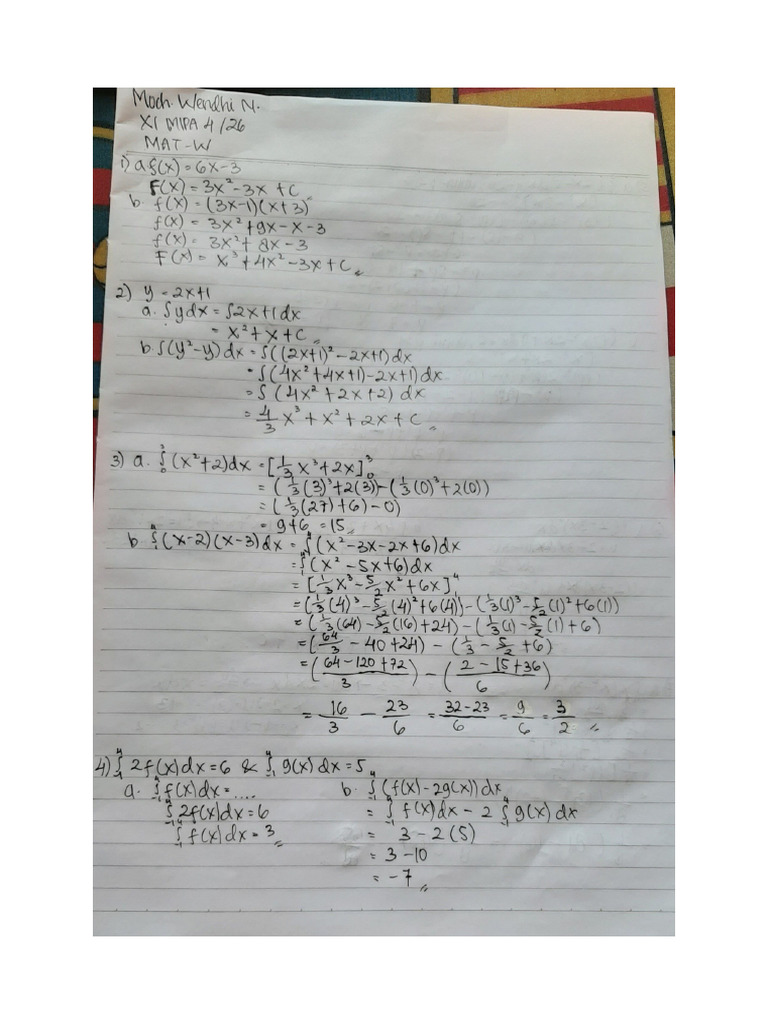 Moch. Wendhi N.
XI MIPA 4/26
MAT-W
1) a. f(x) = 6x-3
F(x) = 3x² - 3x + C
b. f(x) = (3x-1)(x+3)
f(x) = 3x² + 9x - x - 3
f(x) = 3x² + 8x - 3
F(x) = x³ + 4x² - 3x + C
2) y = 2x+1
a. ∫ y dx = ∫ 2x+1 dx
= x² + x + C
b. ∫(y² - y) dx = ∫((2x+1)² - 2x+1) dx
= ∫(4x² + 4x+1) - 2x+1) dx
= ∫ (4x² + 2x + 2) dx
= 4/3 x³ + x² + 2x + C
3) a. ∫₀³ (x²+2) dx = [1/3 x³ + 2x]₀³
= (1/3 (3)³ + 2(3)) - (1/3 (0)³ + 2(0))
= (1/3 (27) + 6) - 0)
= 9+6 = 15
b. ∫₁⁴ (x-2)(x-3) dx = ∫₁⁴ (x² - 3x - 2x + 6) dx
= ∫₁⁴ (x² - 5x + 6) dx
= [1/3 x³ - 5/2 x² + 6x]₁⁴
= (1/3 (4)³ - 5/2 (4)² + 6(4)) - (1/3 (1)³ - 5/2 (1)² + 6(1))
= (1/3 (64) - 5/2 (16) + 24) - (1/3 (1) - 5/2 (1) + 6)
= (64/3 - 40 + 24) - (1/3 - 5/2 + 6)
= ((64 - 120 + 72)/3) - ((2 - 15 + 36)/6)
= 16/3 - 23/6 = (32-23)/6 = 9/6 = 3/2
4) ∫₋₁⁴ 2f(x) dx = 6 & ∫₋₁⁴ g(x) dx = 5
a. ∫₋₁⁴ f(x) dx = ....
∫₋₁⁴ 2f(x) dx = 6
∫₋₁⁴ f(x) dx = 3
b. ∫₋₁⁴ (f(x) - 2g(x)) dx
= ∫₋₁⁴ f(x) dx - 2 ∫₋₁⁴ g(x) dx
= 3 - 2 (5)
= 3 - 10
= -7